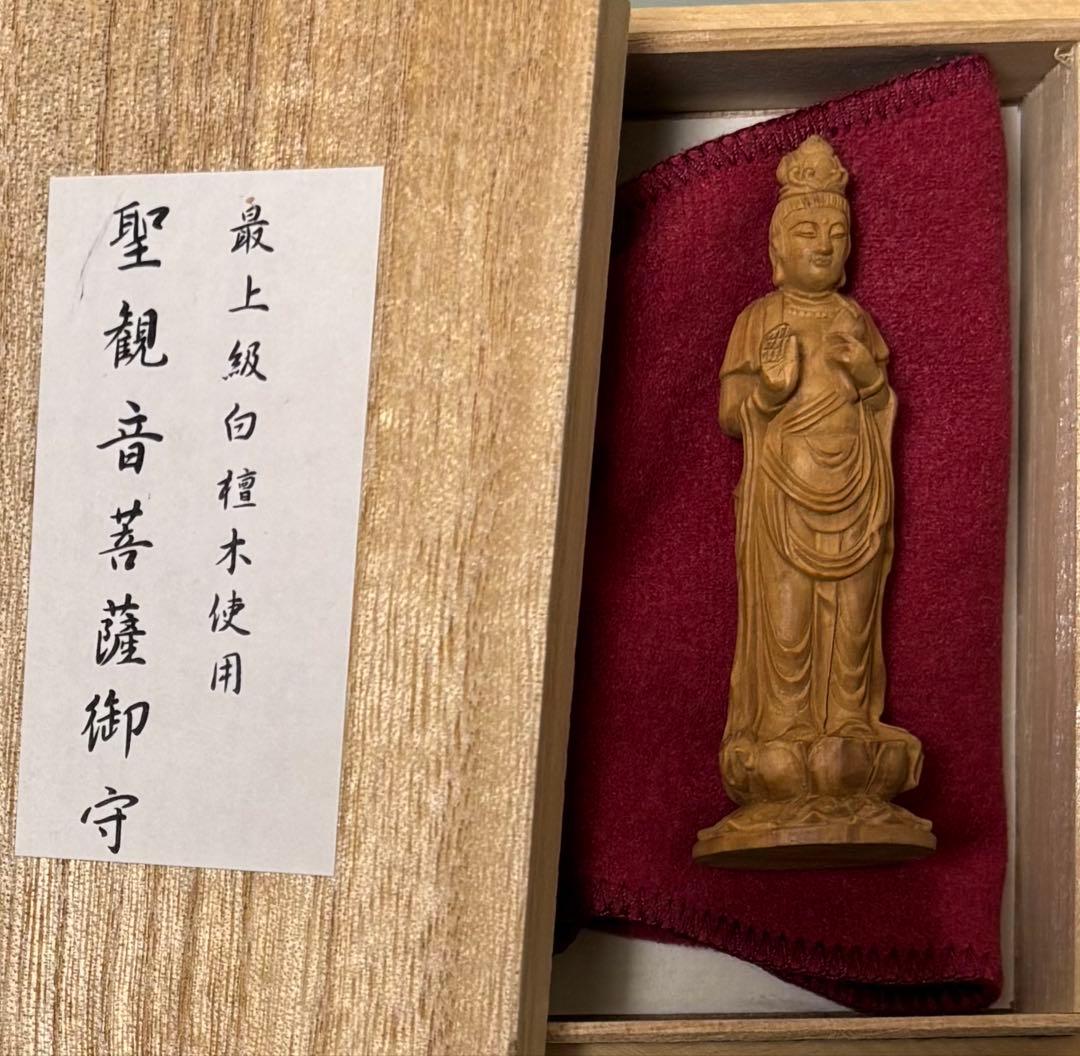 最上級白檀木使用
聖観音菩薩御守